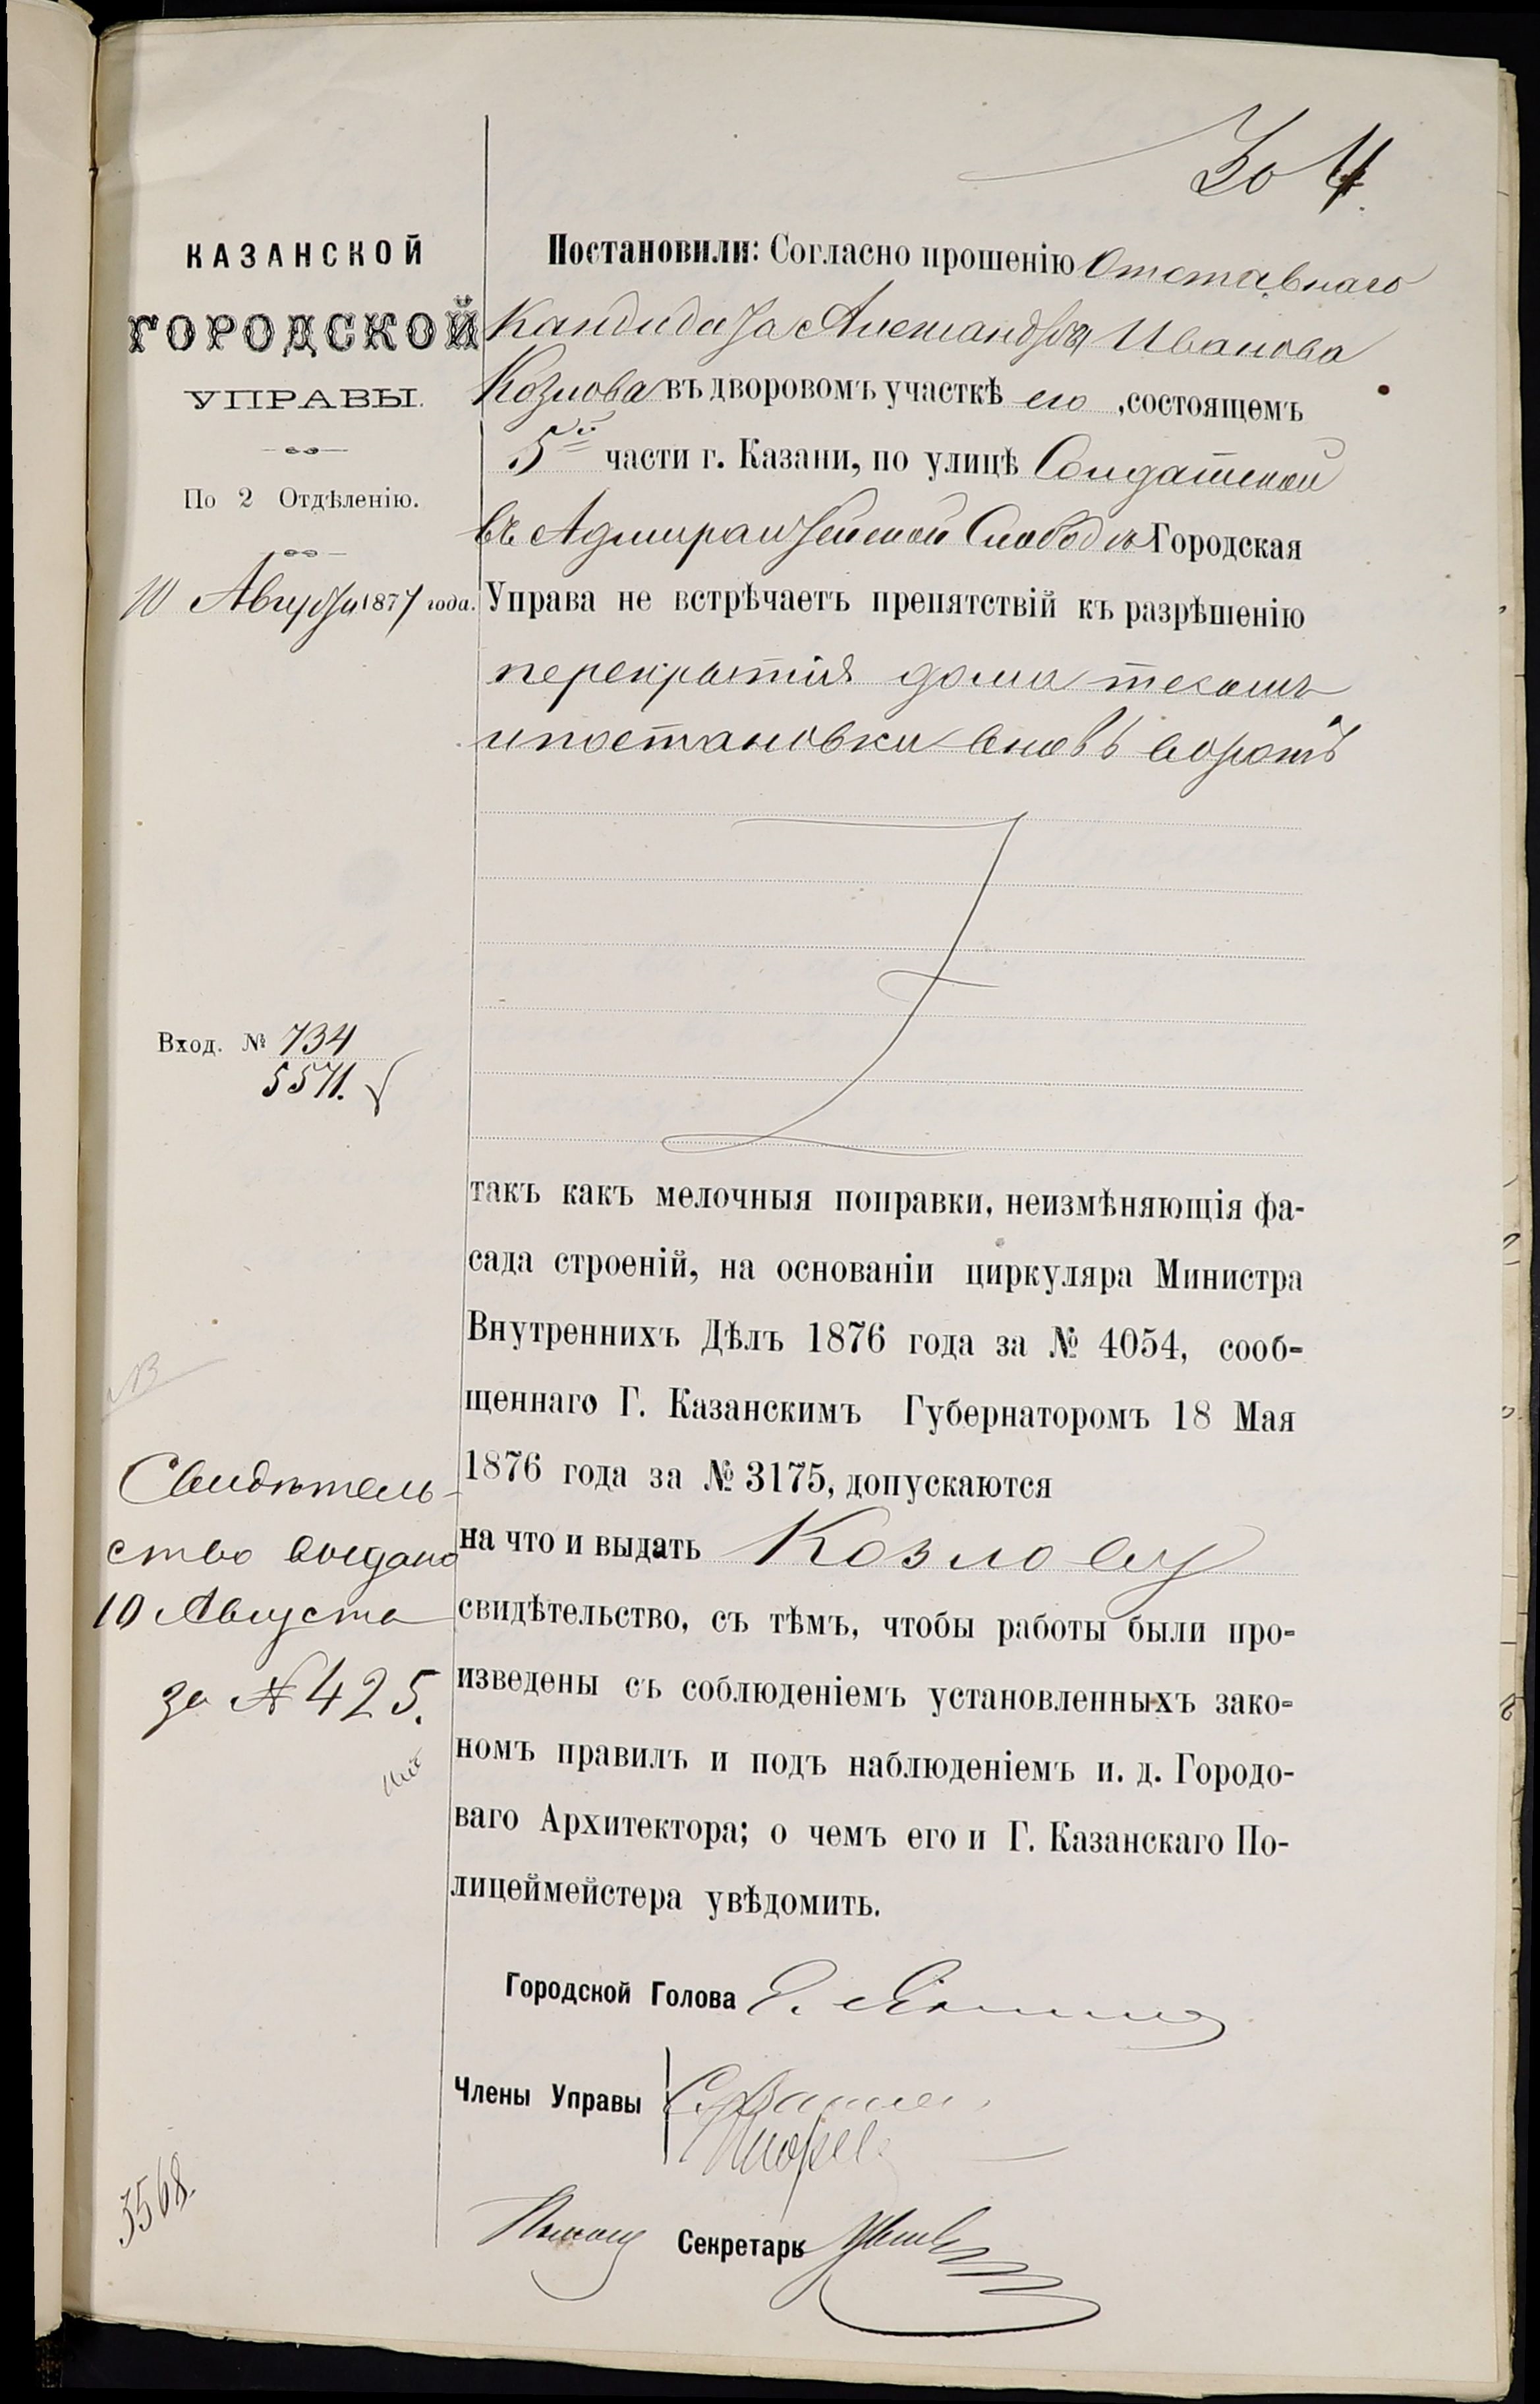 КАЗАНСКОЙ
ГОРОДСКОЙ
УПРАВЫ.
По 2 Отдѣленію.
10 Августа 1877 года.
Вход. № 734
5571.
Свидѣтель-
ство выдано
10 Августа
за № 425.
3568.
Постановили: Согласно прошенію Отставнаго
Кандидата Александра Иванова
Козлова въ дворовомъ участкѣ его, состоящемъ
5й части г. Казани, по улицѣ Солдатской
въ Адмиралтейской Слободѣ Городская
Управа не встрѣчаетъ препятствій къ разрѣшенію
перекрытія дома тесомъ
и постановки вновь воротъ
такъ какъ мелочныя поправки, неизмѣняющія фа-
сада строеній, на основаніи циркуляра Министра
Внутреннихъ Дѣлъ 1876 года за № 4054, сооб-
щеннаго Г. Казанскимъ Губернаторомъ 18 Мая
1876 года за № 3175, допускаются
на что и выдать Козлову
свидѣтельство, съ тѣмъ, чтобы работы были про-
изведены съ соблюденіемъ установленныхъ зако-
номъ правилъ и подъ наблюденіемъ и. д. Городо-
ваго Архитектора; о чемъ его и Г. Казанскаго По-
лицеймейстера увѣдомить.
Городской Голова
Члены Управы
Секретарь